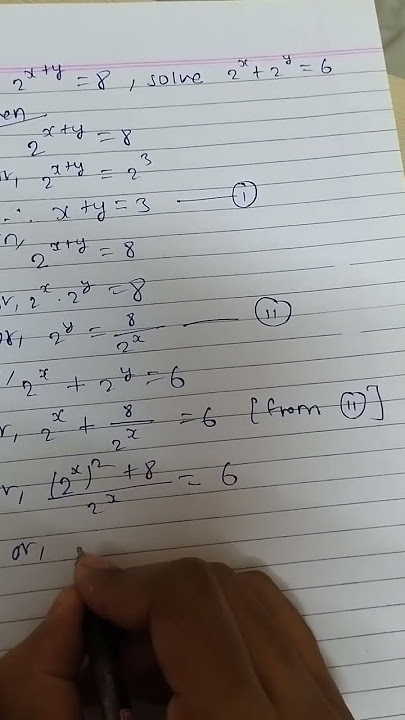 2^{x+y} = 8 , solve 2^x + 2^y = 6
en
2^{x+y} = 8
r, 2^{x+y} = 2^3
∴ x+y = 3 —— (i)
2^{x+y} = 8
r, 2^x · 2^y = 8
or, 2^y = 8/2^x —— (ii)
2^x + 2^y = 6
r, 2^x + 8/2^x = 6 [from (ii)]
r, ((2^x)^2 + 8)/2^x = 6
or,